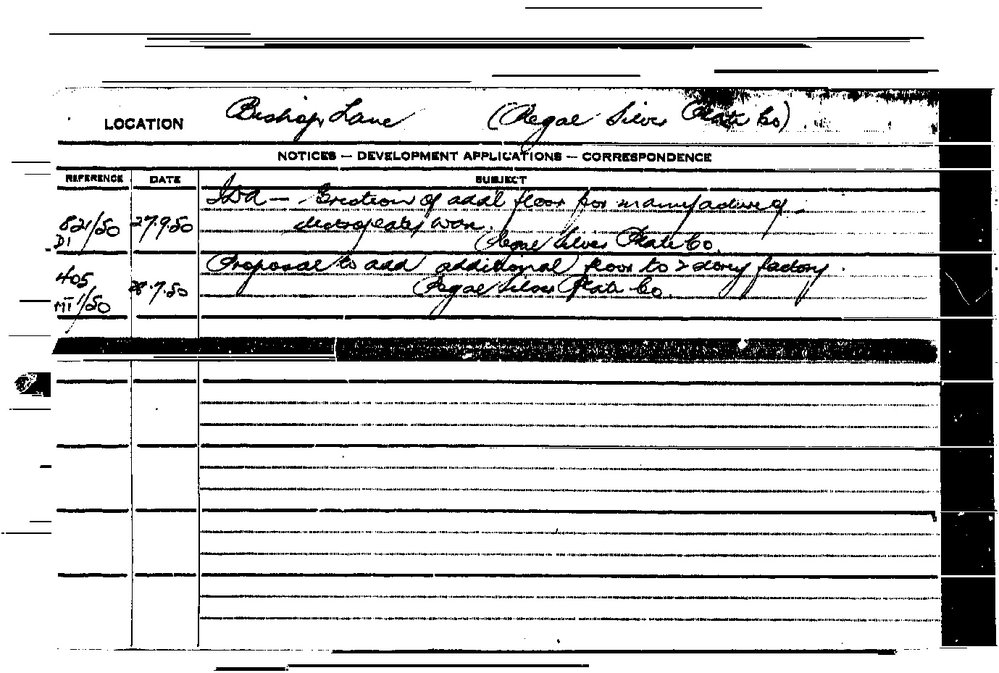 LOCATION Bishop Lane (Regal Silver Plate Co)
NOTICES — DEVELOPMENT APPLICATIONS — CORRESPONDENCE
REFERENCE DATE SUBJECT
IDA — Erection of addl floor for manufacture of
821/50 27.9.50 electroplated ware.
D1 Regal Silver Plate Co.
Proposal to add additional floor to 2 storey factory.
405 28.7.50 Regal Silver Plate Co.
MT 1/50